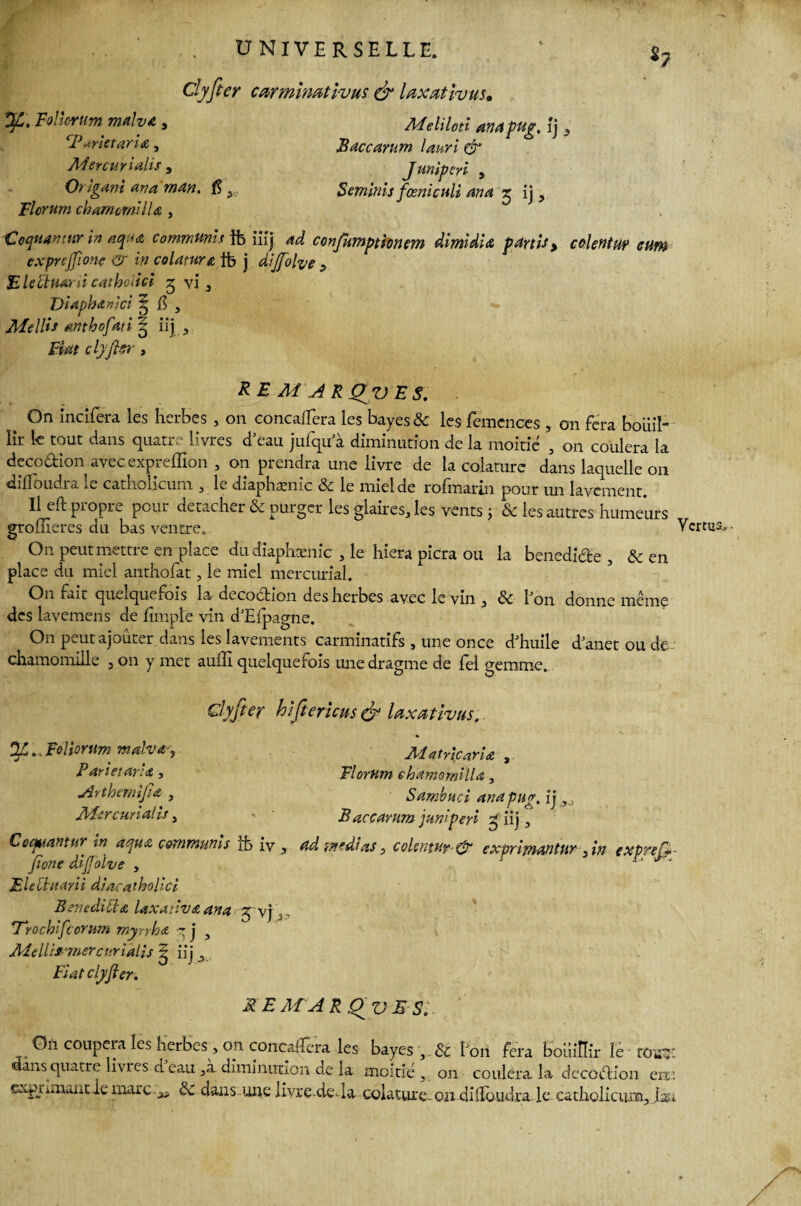 UNIVERSELLE. 87
Clyster carminativus & laxativus.
℞. Foliorum malvæ,
Parietariæ,
Mercurialis,
Origani ana man. ß,
Florum chamomillæ,
Meliloti ana pug. ij,
Baccarum lauri &
Juniperi,
Seminis fœniculi ana ʒ ij,
Coquantur in aquæ communis ℔ iiij ad consumptionem dimidiæ partis, colentur cum
expressione & in colaturæ ℔ j dissolve,
Electuarii catholici ʒ vi,
Diaphænici ℥ ß,
Mellis anthosati ℥ iij,
Fiat clyster,
REMARQVES.
On incisera les herbes, on concassera les bayes & les semences, on fera boüil-
lir le tout dans quatre livres d'eau jusqu'à diminution de la moitié, on coulera la
decoction avec expression, on prendra une livre de la colature dans laquelle on
dissoudra le catholicum, le diaphænic & le miel de rosmarin pour un lavement.
Il est propre pour detacher & purger les glaires, les vents; & les autres humeurs
grossieres du bas ventre.
Vertus.
On peut mettre en place du diaphænic, le hiera picra ou la benedicte, & en
place du miel anthosat, le miel mercurial.
On fait quelquefois la decoction des herbes avec le vin, & l'on donne même
des lavemens de simple vin d'Espagne.
On peut ajoûter dans les lavements carminatifs, une once d'huile d'anet ou de
chamomille, on y met aussi quelquefois une dragme de sel gemme.
Clyster histericus & laxativus.
℞. Foliorum malvæ,
Parietariæ,
Arthemisiæ,
Mercurialis,
Matricariæ,
Florum chamomillæ,
Sambuci ana pug. ij,
Baccarum juniperi ʒ iij,
Coquantur in aquæ communis ℔ iv, ad medias, colentur & exprimantur, in expres-
sione dissolve,
Electuarii diacatholici
Benedictæ laxativæ ana ʒ vj,
Trochiscorum myrrhæ ʒ j,
Mellis mercurialis ℥ iij,
Fiat clyster.
REMARQVES.
On coupera les herbes, on concassera les bayes, & l'on fera boüillir le tout
dans quatre livres d'eau, à diminution de la moitié, on coulera la decoction en
exprimant le marc, & dans une livre de la colature on dissoudra le catholicum, la